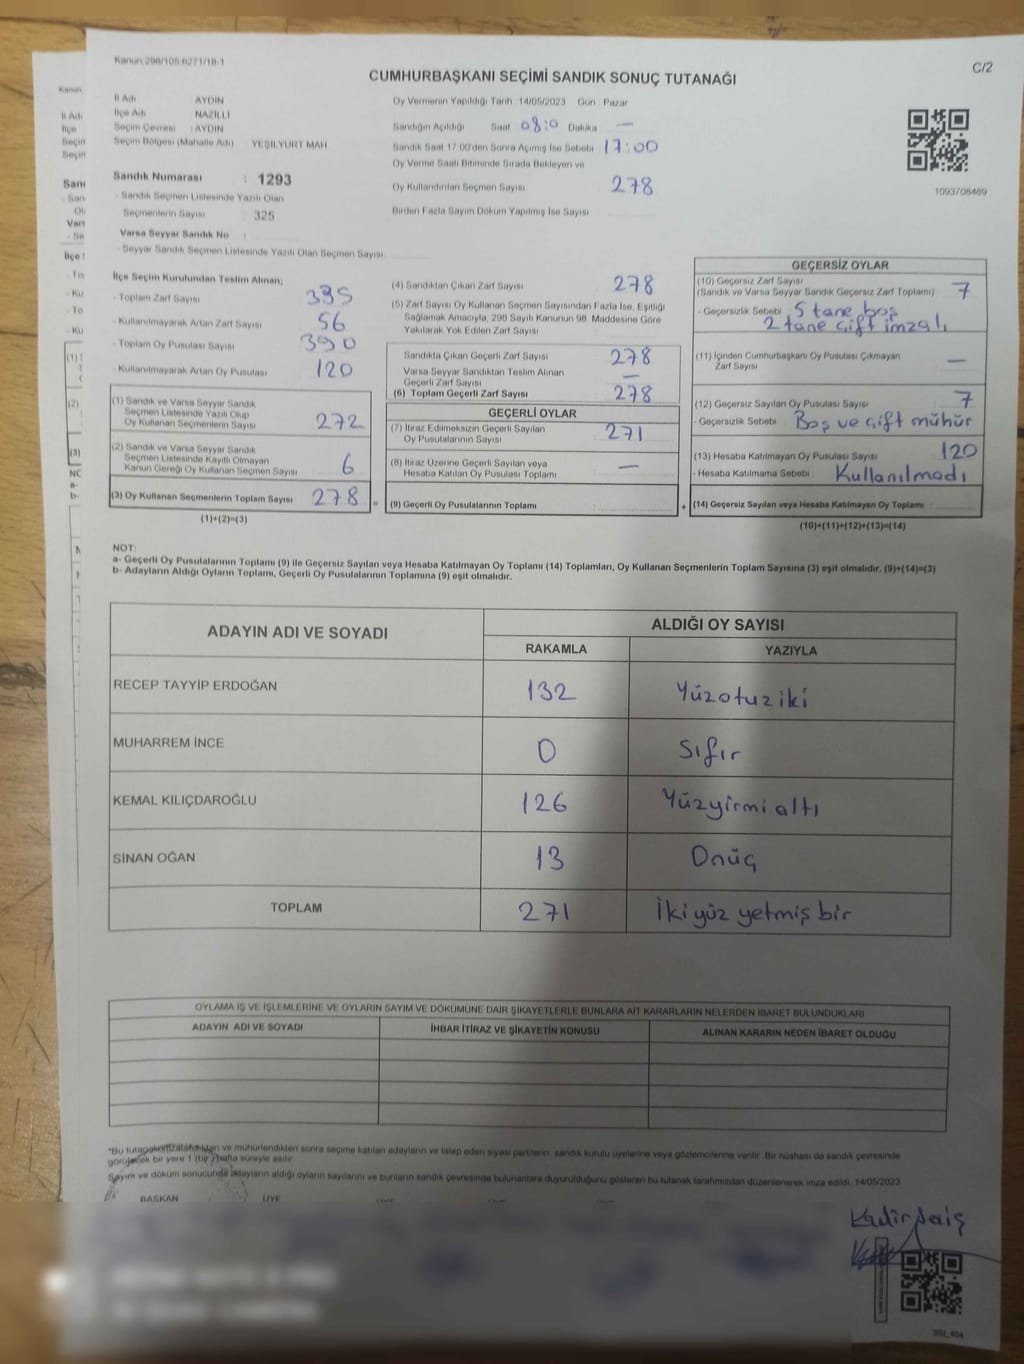 Kanun:298/105.6271/18-1
C/2
CUMHURBAŞKANI SEÇİMİ SANDIK SONUÇ TUTANAĞI
İl Adı AYDIN
İlçe Adı NAZİLLİ
Seçim Çevresi : AYDIN
Seçim Bölgesi (Mahalle Adı) YEŞİLYURT MAH
Sandık Numarası : 1293
- Sandık Seçmen Listesinde Yazılı Olan
Seçmenlerin Sayısı : 325
Varsa Seyyar Sandık No :
- Seyyar Sandık Seçmen Listesinde Yazılı Olan Seçmen Sayısı
Oy Vermenin Yapıldığı Tarih 14/05/2023 Gün : Pazar
Sandığın Açıldığı Saat 08:0 Dakika —
Sandık Saat 17:00'den Sonra Açımış İse Sebebi 17:00
Oy Verme Saati Bitiminde Sırada Bekleyen ve
Oy Kullandırılan Seçmen Sayısı : 278
Birden Fazla Sayım Döküm Yapılmış İse Sayısı :
1093708489
İlçe Seçim Kurulundan Teslim Alınan;
- Toplam Zarf Sayısı 395
- Kullanılmayarak Artan Zarf Sayısı 56
- Toplam Oy Pusulası Sayısı 390
- Kullanılmayarak Artan Oy Pusulası 120
(1) Sandık ve Varsa Seyyar Sandık
Seçmen Listesinde Yazılı Olup
Oy Kullanan Seçmenlerin Sayısı 272
(2) Sandık ve Varsa Seyyar Sandık
Seçmen Listesinde Kayıtlı Olmayan
Kanun Gereği Oy Kullanan Seçmen Sayısı 6
(3) Oy Kullanan Seçmenlerin Toplam Sayısı 278 =
(1)+(2)=(3)
(4) Sandıktan Çıkan Zarf Sayısı 278
(5) Zarf Sayısı Oy Kullanan Seçmen Sayısından Fazla İse, Eşitliği
Sağlamak Amacıyla, 298 Sayılı Kanunun 98. Maddesine Göre
Yakılarak Yok Edilen Zarf Sayısı :
Sandıkta Çıkan Geçerli Zarf Sayısı 278
Varsa Seyyar Sandıktan Teslim Alınan
Geçerli Zarf Sayısı —
(6) Toplam Geçerli Zarf Sayısı 278
GEÇERLİ OYLAR
(7) İtiraz Edilmeksizin Geçerli Sayılan
Oy Pusulalarının Sayısı 271
(8) İtiraz Üzerine Geçerli Sayılan veya
Hesaba Katılan Oy Pusulası Toplamı —
(9) Geçerli Oy Pusulalarının Toplamı : +
GEÇERSİZ OYLAR
(10) Geçersiz Zarf Sayısı
(Sandık ve Varsa Seyyar Sandık Geçersiz Zarf Toplamı) 7
- Geçersizlik Sebebi : 5 tane boş
2 tane çift imzalı
(11) İçinden Cumhurbaşkanı Oy Pusulası Çıkmayan
Zarf Sayısı —
(12) Geçersiz Sayılan Oy Pusulası Sayısı 7
- Geçersizlik Sebebi : Boş ve çift mühür
(13) Hesaba Katılmayan Oy Pusulası Sayısı 120
- Hesaba Katılmama Sebebi : Kullanılmadı
(14) Geçersiz Sayılan veya Hesaba Katılmayan Oy Toplamı :
(10)+(11)+(12)+(13)=(14)
NOT:
a- Geçerli Oy Pusulalarının Toplamı (9) ile Geçersiz Sayılan veya Hesaba Katılmayan Oy Toplamı (14) Toplamları, Oy Kullanan Seçmenlerin Toplam Sayısına (3) eşit olmalıdır. (9)+(14)=(3)
b- Adayların Aldığı Oyların Toplamı, Geçerli Oy Pusulalarının Toplamına (9) eşit olmalıdır.
ADAYIN ADI VE SOYADI ALDIĞI OY SAYISI
RAKAMLA YAZIYLA
RECEP TAYYİP ERDOĞAN 132 Yüzotuziki
MUHARREM İNCE 0 Sıfır
KEMAL KILIÇDAROĞLU 126 Yüzyirmialtı
SİNAN OĞAN 13 Onüç
TOPLAM 271 İkiyüz yetmiş bir
OYLAMA İŞ VE İŞLEMLERİNE VE OYLARIN SAYIM VE DÖKÜMÜNE DAİR ŞİKAYETLERLE BUNLARA AİT KARARLARIN NELERDEN İBARET BULUNDUKLARI
ADAYIN ADI VE SOYADI İHBAR İTİRAZ VE ŞİKAYETİN KONUSU ALINAN KARARIN NEDEN İBARET OLDUĞU
*Bu tutanak ve mühürlendikten sonra seçime katılan adayların ve talep eden siyasi partilerin sandık kurulu üyelerine veya gözlemcilerine verilir. Bir nüshası da sandık çevresinde
görülecek bir yere 1 (bir) hafta süreyle asılır.
Sayım ve döküm sonucunda adayların aldığı oyların sayılarını ve bunların sandık çevresinde bulunanlara duyurulduğunu gösteren bu tutanak tarafımızdan düzenlenerek imza edildi. 14/05/2023
BAŞKAN ÜYE